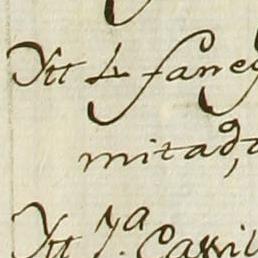 Ytt 4 faneg
mitad,
Ytt ya. Cavil